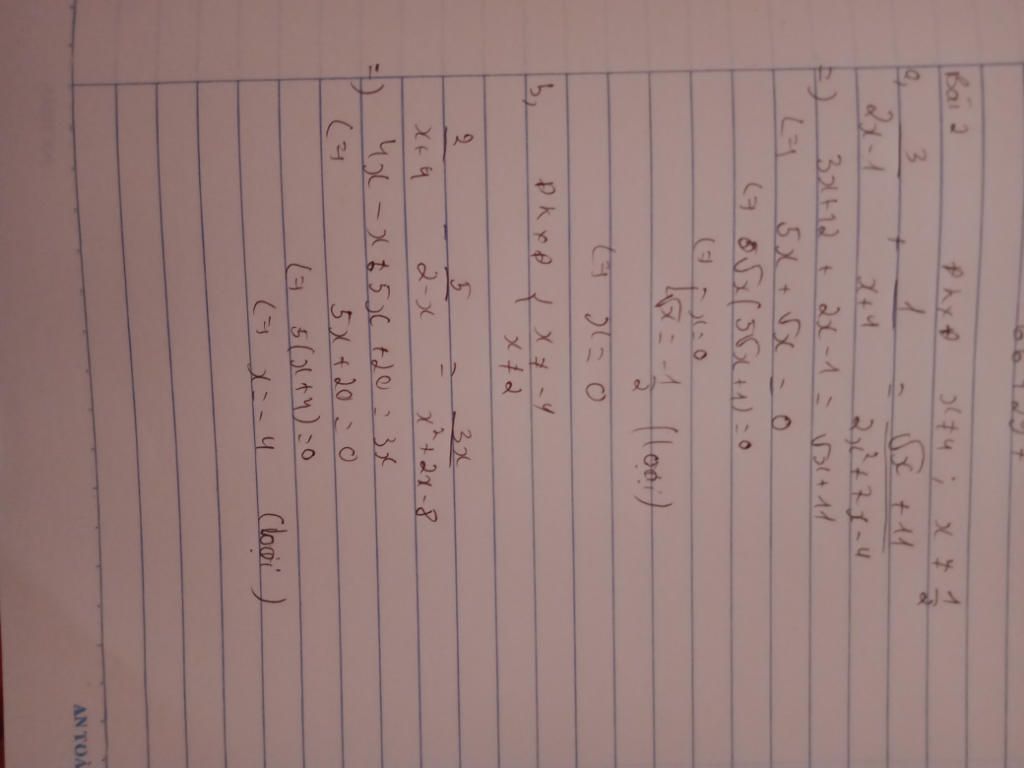 Bài 2 ĐKXĐ x ≠ 4 ; x ≠ 1/2
a, 3/(2x-1) + 1/(x+4) = (√x + 11)/(2x² + 7x - 4)
=) 3x+12 + 2x-1 = √x + 11
(=) 5x + √x = 0
(=) √x (5√x + 1) = 0
(=) [ x = 0
√x = -1/2 (loại)
(=) x = 0
b, ĐKXĐ { x ≠ -4
x ≠ 2
2/(x+4) - 5/(2-x) = 3x/(x² + 2x - 8)
=) 4x - x + 5x + 20 = 3x
(=) 5x + 20 = 0
(=) 5(x+4) = 0
(=) x = -4 (loại)